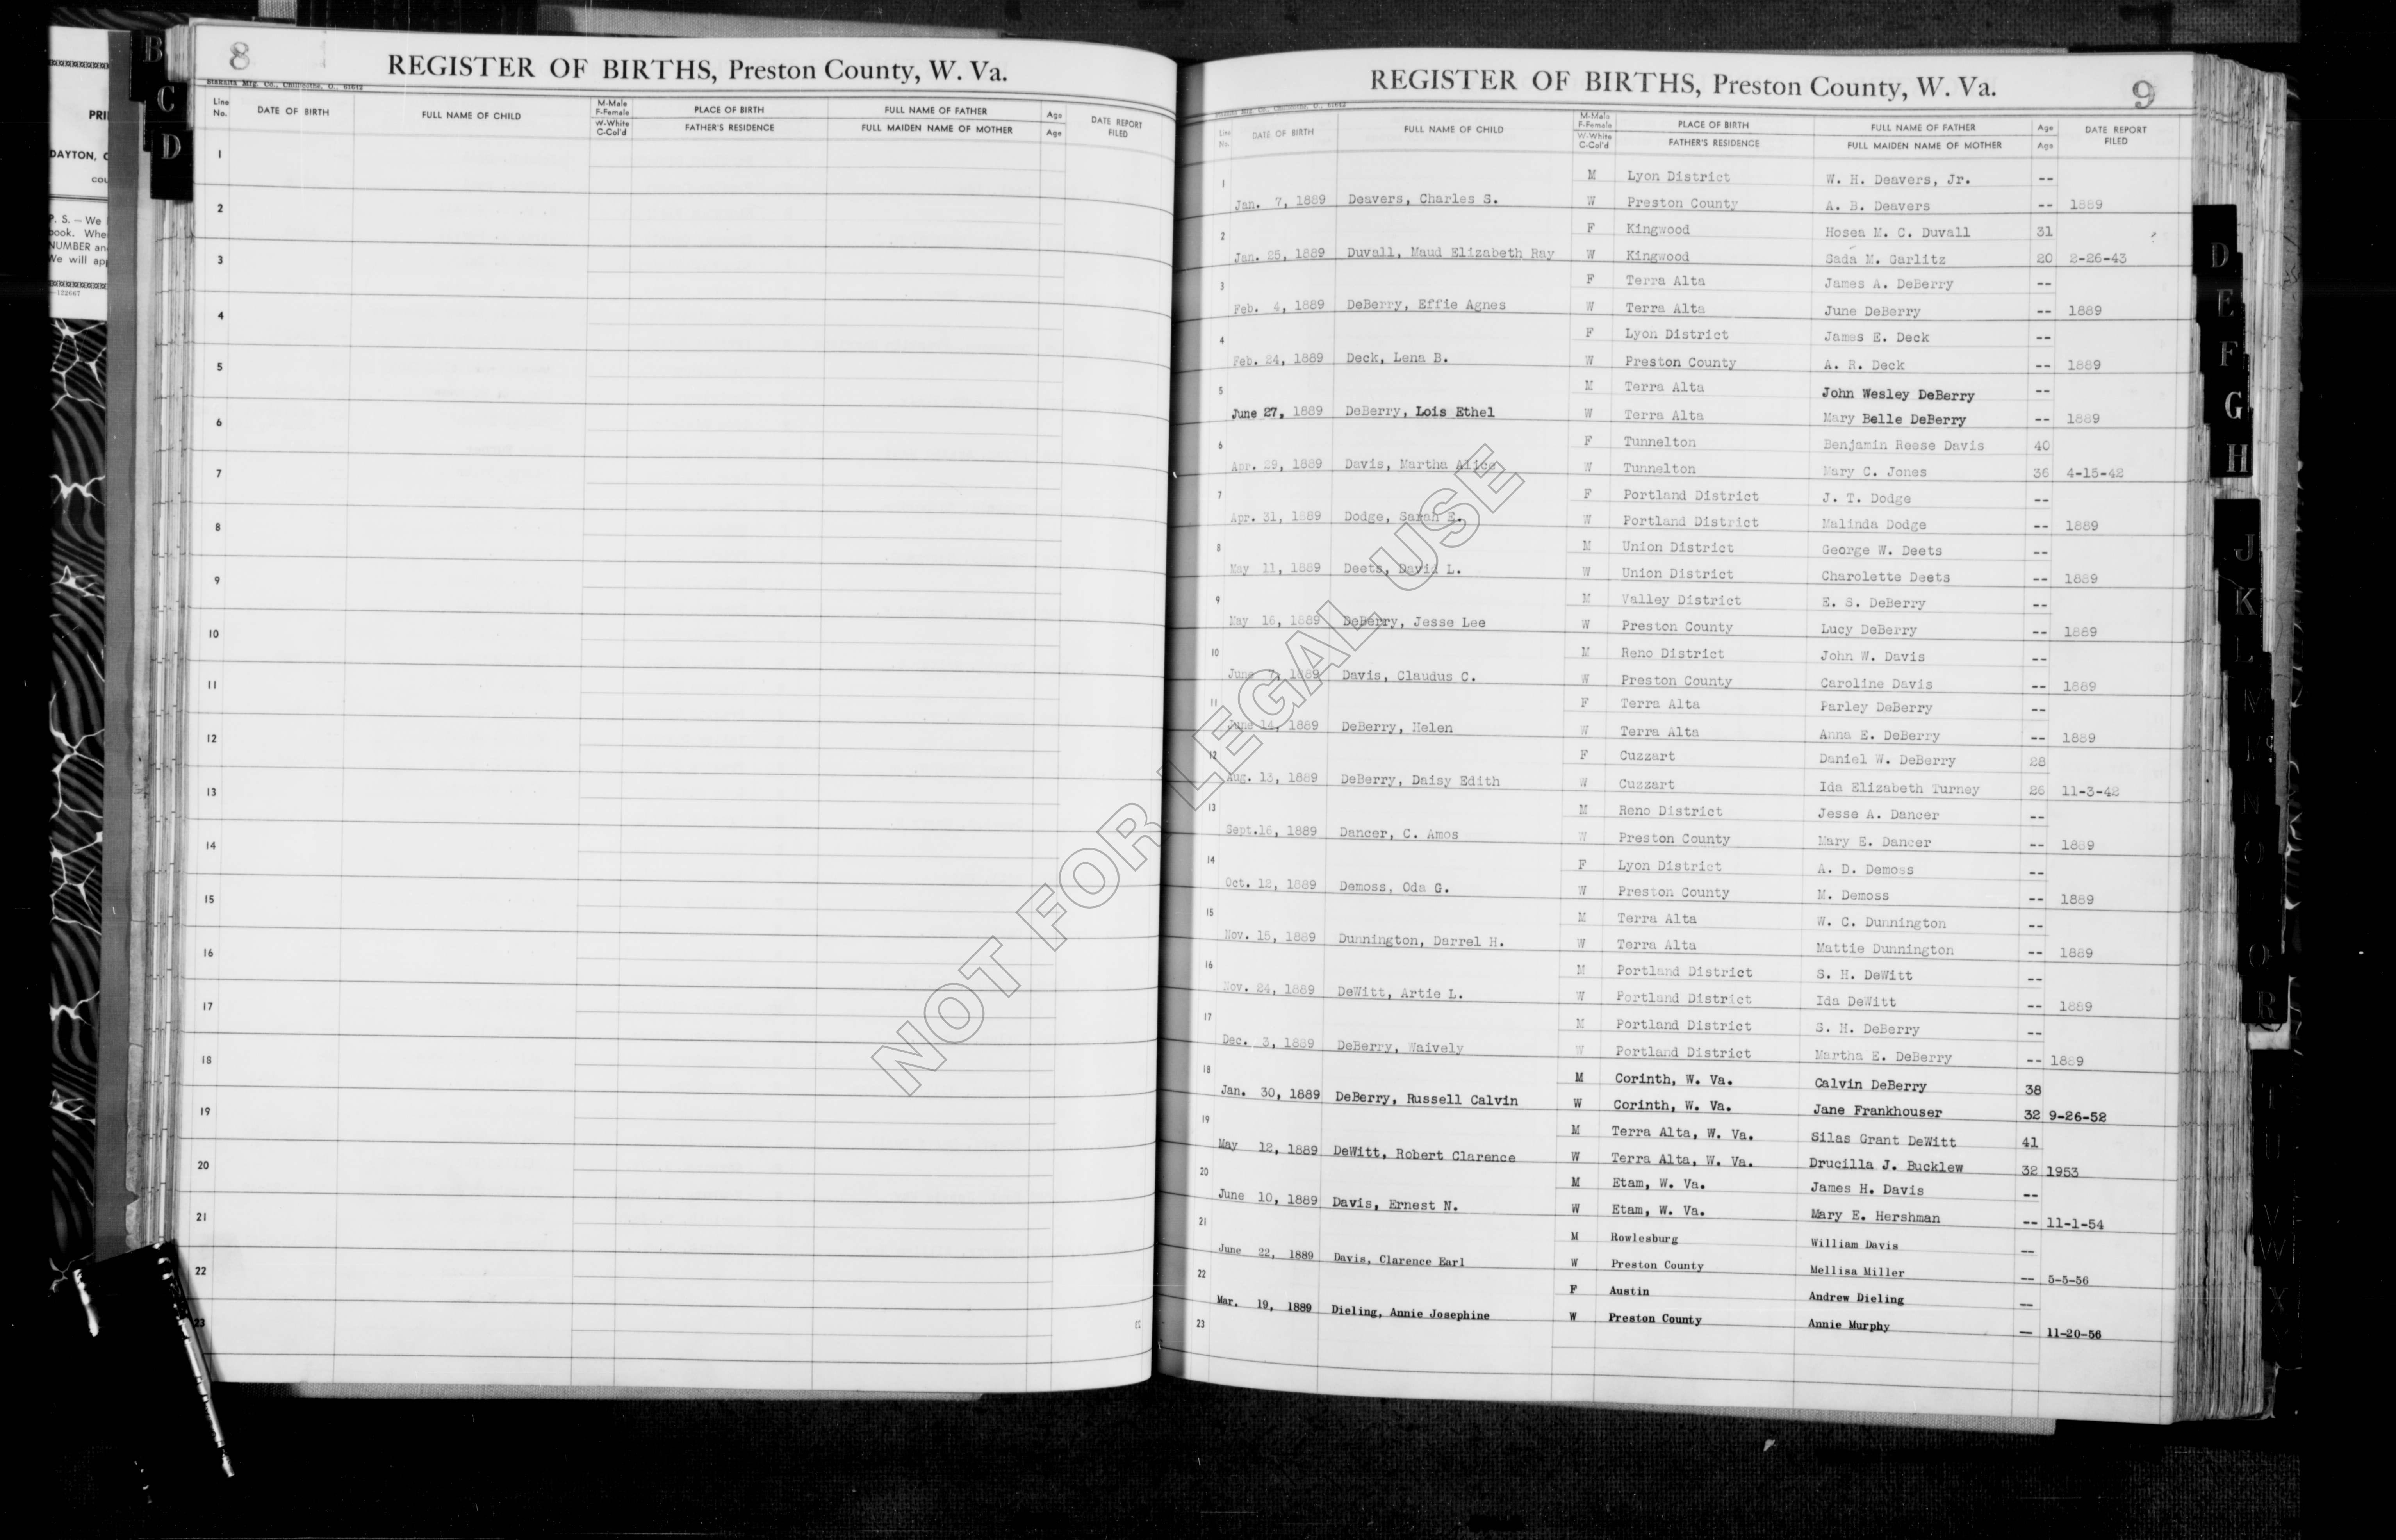 B
C
D
PRI
DAYTON, C
COU
P. S. — We
book. Whe
NUMBER an
We will ap
122667
8
REGISTER OF BIRTHS, Preston County, W. Va.
Line No. DATE OF BIRTH FULL NAME OF CHILD M-Male F-Female W-White C-Col'd PLACE OF BIRTH FATHER'S RESIDENCE FULL NAME OF FATHER FULL MAIDEN NAME OF MOTHER Age Age DATE REPORT FILED
1
2
3
4
5
6
7
8
9
10
11
12
13
14
15
16
17
18
19
20
21
22
23
REGISTER OF BIRTHS, Preston County, W. Va.
9
Line No. DATE OF BIRTH FULL NAME OF CHILD M-Male F-Female W-White C-Col'd PLACE OF BIRTH FATHER'S RESIDENCE FULL NAME OF FATHER FULL MAIDEN NAME OF MOTHER Age Age DATE REPORT FILED
1 M Lyon District W. H. Deavers, Jr. --
Jan. 7, 1889 Deavers, Charles S. W Preston County A. B. Deavers -- 1889
2 F Kingwood Hosea M. C. Duvall 31
Jan. 25, 1889 Duvall, Maud Elizabeth Ray W Kingwood Sada M. Garlitz 20 2-26-43
3 F Terra Alta James A. DeBerry --
Feb. 4, 1889 DeBerry, Effie Agnes W Terra Alta June DeBerry -- 1889
4 F Lyon District James E. Deck --
Feb. 24, 1889 Deck, Lena B. W Preston County A. R. Deck -- 1889
5 M Terra Alta John Wesley DeBerry --
June 27, 1889 DeBerry, Lois Ethel W Terra Alta Mary Belle DeBerry -- 1889
6 F Tunnelton Benjamin Reese Davis 40
Apr. 29, 1889 Davis, Martha Alice W Tunnelton Mary C. Jones 36 4-15-42
7 F Portland District J. T. Dodge --
Apr. 31, 1889 Dodge, Sarah E. W Portland District Malinda Dodge -- 1889
8 M Union District George W. Deets --
May 11, 1889 Deets, David L. W Union District Charolette Deets -- 1889
9 M Valley District E. S. DeBerry --
May 16, 1889 DeBerry, Jesse Lee W Preston County Lucy DeBerry -- 1889
10 M Reno District John W. Davis --
June 7, 1889 Davis, Claudus C. W Preston County Caroline Davis -- 1889
11 F Terra Alta Parley DeBerry --
June 14, 1889 DeBerry, Helen W Terra Alta Anna E. DeBerry -- 1889
12 F Cuzzart Daniel W. DeBerry 28
Aug. 13, 1889 DeBerry, Daisy Edith W Cuzzart Ida Elizabeth Turney 26 11-3-42
13 M Reno District Jesse A. Dancer --
Sept.16, 1889 Dancer, C. Amos W Preston County Mary E. Dancer -- 1889
14 F Lyon District A. D. Demoss --
Oct. 12, 1889 Demoss, Oda G. W Preston County M. Demoss -- 1889
15 M Terra Alta W. C. Dunnington --
Nov. 15, 1889 Dunnington, Darrel H. W Terra Alta Mattie Dunnington -- 1889
16 M Portland District S. H. DeWitt --
Nov. 24, 1889 DeWitt, Artie L. W Portland District Ida DeWitt -- 1889
17 M Portland District S. H. DeBerry --
Dec. 3, 1889 DeBerry, Waively W Portland District Martha E. DeBerry -- 1889
18 M Corinth, W. Va. Calvin DeBerry 38
Jan. 30, 1889 DeBerry, Russell Calvin W Corinth, W. Va. Jane Frankhouser 32 9-26-52
19 M Terra Alta, W. Va. Silas Grant DeWitt 41
May 12, 1889 DeWitt, Robert Clarence W Terra Alta, W. Va. Drucilla J. Bucklew 32 1953
20 M Etam, W. Va. James H. Davis --
June 10, 1889 Davis, Ernest N. W Etam, W. Va. Mary E. Hershman -- 11-1-54
21 M Rowlesburg William Davis —
June 22, 1889 Davis, Clarence Earl W Preston County Mellisa Miller — 5-5-56
22 F Austin Andrew Dieling —
Mar. 19, 1889 Dieling, Annie Josephine W Preston County Annie Murphy — 11-20-56
23
D
E
F
G
H
J
K
L
M
N
O
R
T
U
V
W
X
NOT FOR LEGAL USE